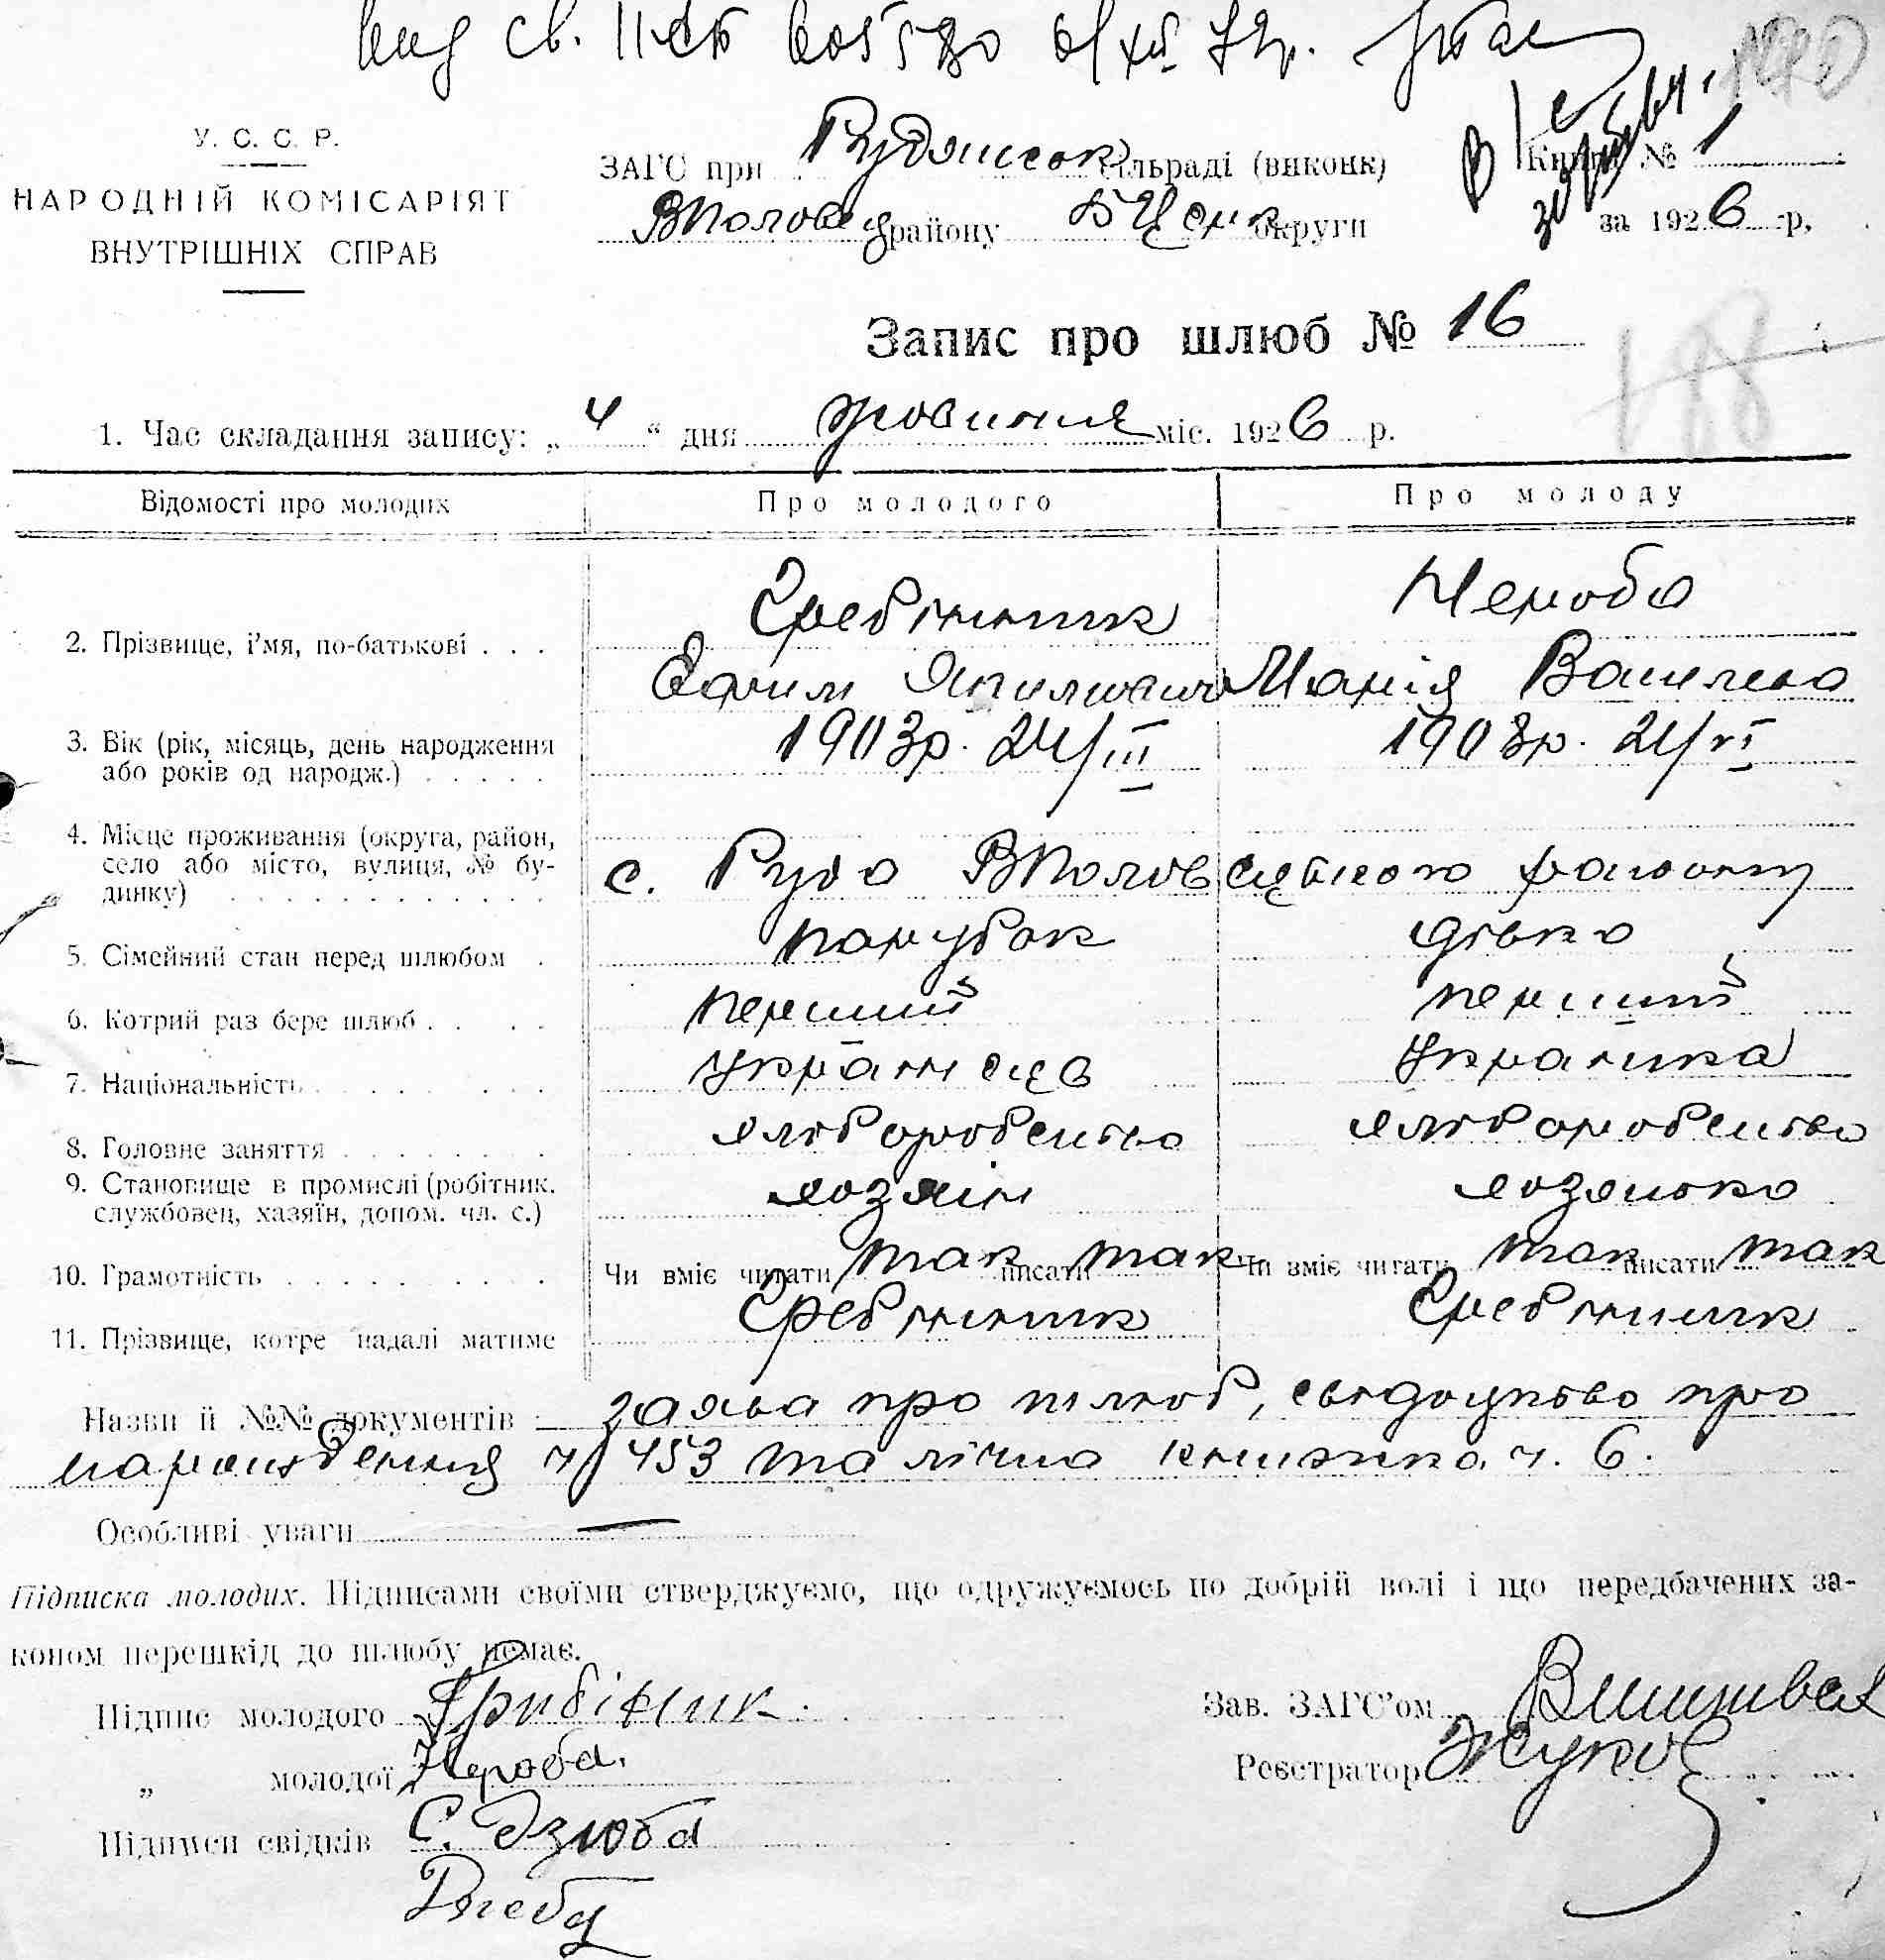 У. С. С. Р.
НАРОДНІЙ КОМІСАРІЯТ
ВНУТРІШНІХ СПРАВ
ЗАГС при Рудянськ сільраді (виконк)
ВПоловец району БЦерк округи
Книга № 1
за 1926 р,
Запис про шлюб № 16
1. Час складання запису: „ 4 “ дня жовтня міс. 1926 р.
Відомості про молодих Про молодого Про молоду
2. Прізвище, і'мя, по-батькові . . . Гребінник Нероба
Марія Василева
3. Вік (рік, місяць, день народження або років од народж.) 1903р. 24/III 1908р. 21/VI
4. Місце проживання (округа, район, село або місто, вулиця, № будинку) с. Руда ВПоловецького району
5. Сімейний стан перед шлюбом . парубок дівка
6. Котрий раз бере шлюб . . . . перший перший
7. Національність українець українка
8. Головне заняття хліборобство хліборобство
9. Становище в промислі (робітник, службовец, хазяїн, допом. чл. с.) хозяїн хозяйка
10. Грамотність Чи вміє читати так писати так Чи вміє читати так писати так
11. Прізвище, котре надалі матиме Гребінник Гребінник
Назви й №№ документів : заява про шлюб, свидоцтво про
народження ч 453 та лічна книжка ч. 6.
Особливі уваги —
Підписка молодих. Підписами своїми стверджуємо, що одружуємось по добрій волі і що передбачених за-
коном перешкід до шлюбу немає.
Підпис молодого Грибіник
„ молодої Нероба
Підписи свідків С. Дзюба
Зав. ЗАГС'ом
Реєстратор Жуков